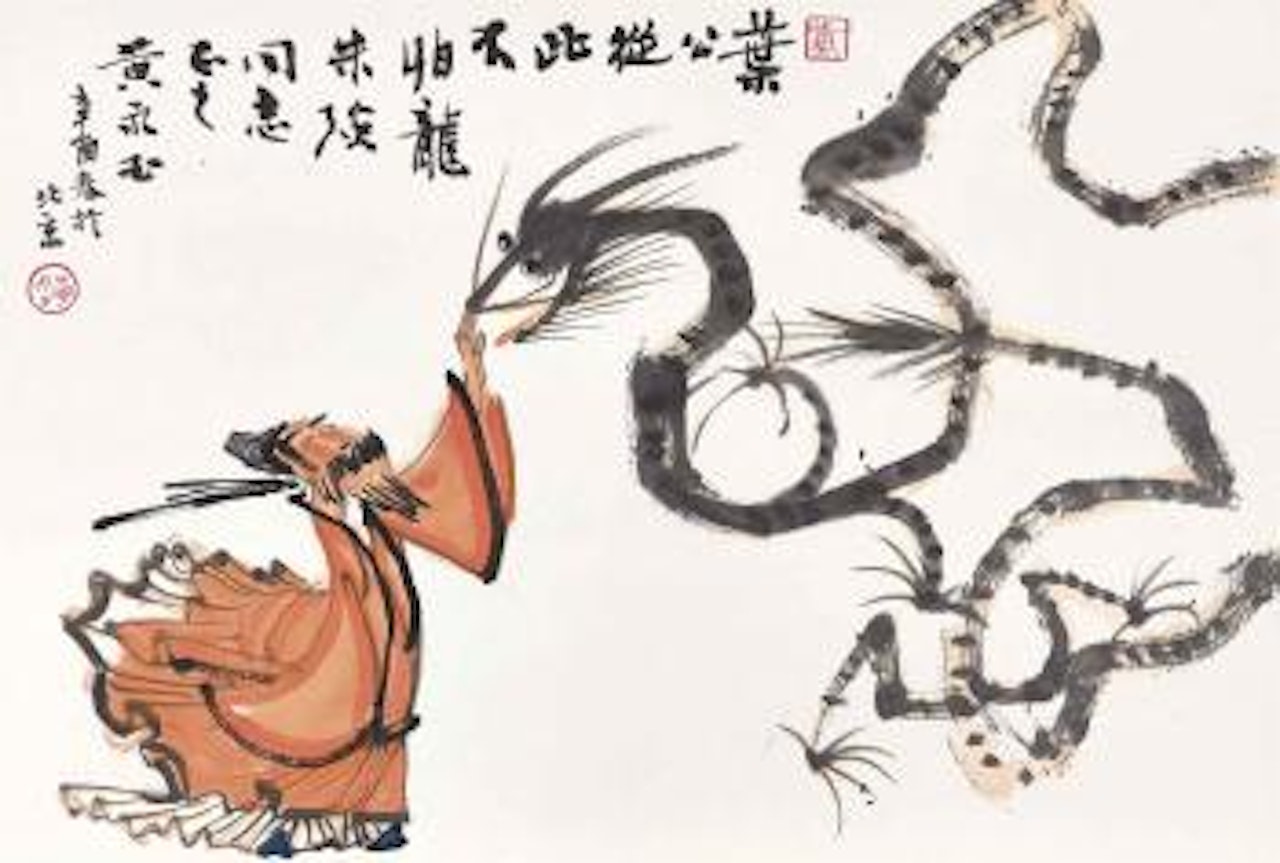 葉公從此不
怕龍
朱
同志
正之
黃永玉
辛酉春於
北京